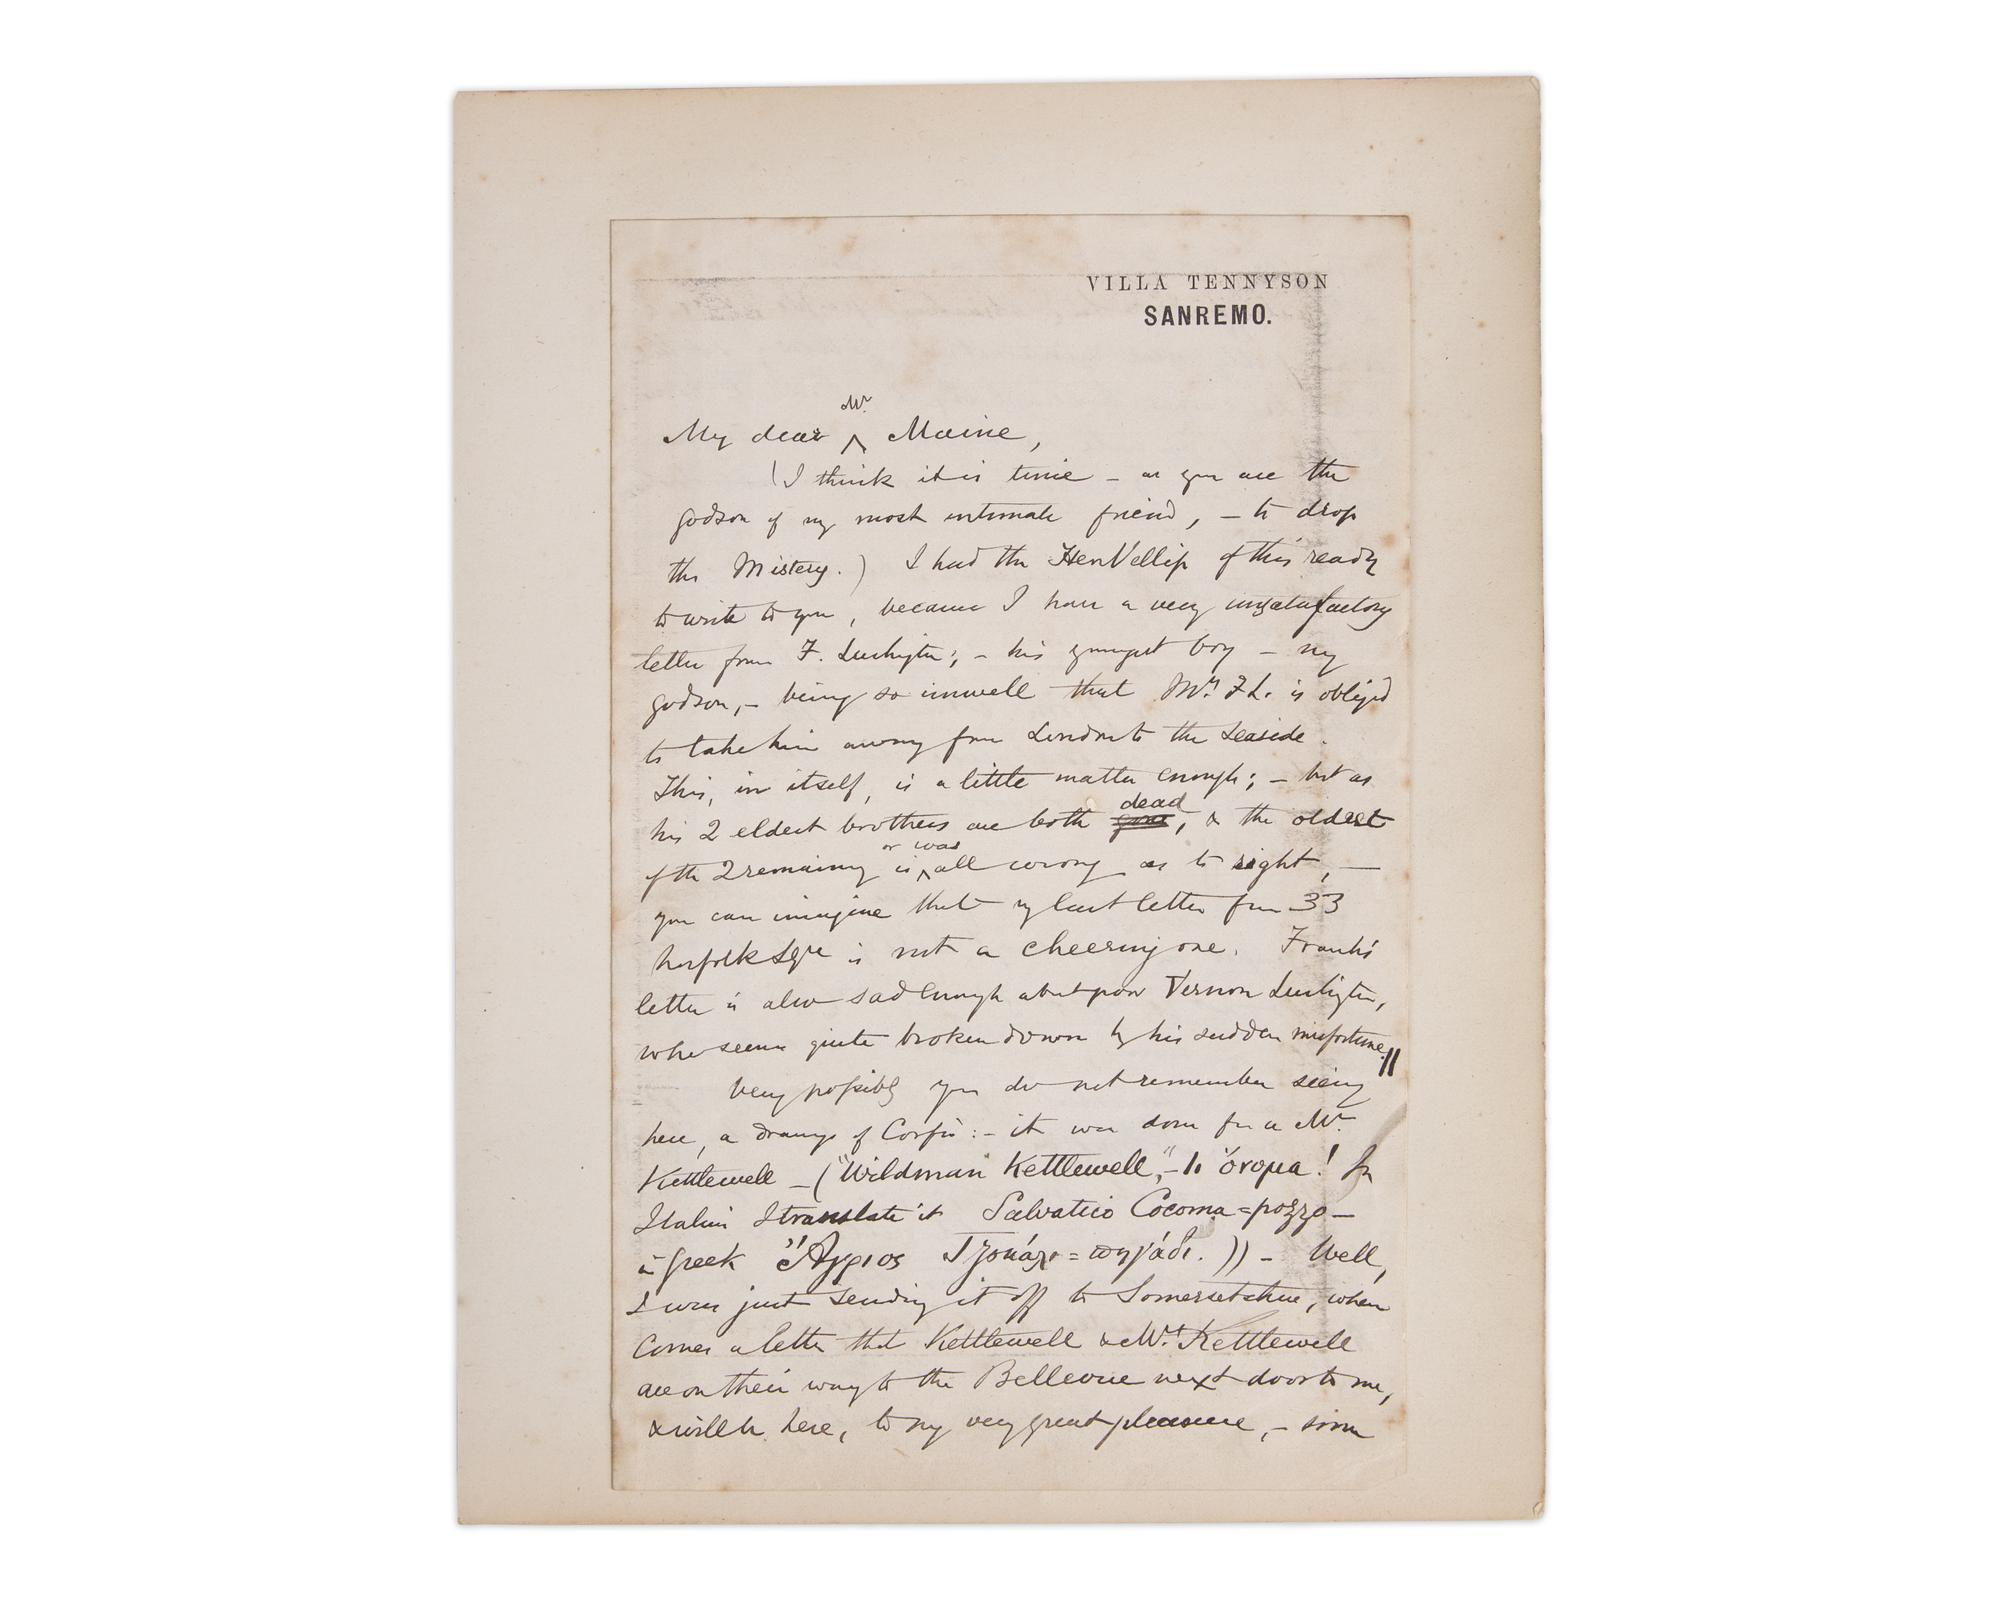 VILLA TENNYSON
SANREMO.
Mr.
My dear ^ Maine,
(I think it is time – as you are the
godson of my most intimate friend, – to drop
the Mistery.) I had the HenVellip of this ready
to write to you, because I have a very unsatisfactory
letter from F. Lushington; – his youngest boy – my
godson, – being so unwell that Mrs. F L. is obliged
to take him away from London to the Seaside.
This, in itself, is a little matter enough; – but as
dead
his 2 eldest brothers are both gone, & the oldest
or was
of the 2 remaining is ^ all wrong as to sight, –
you can imagine that my last letter from 33
Norfolk Sqre is not a cheering one. Frank's
letter is also sad enough about poor Vernon Lushington,
who seems quite broken down by his sudden misfortune. //
Very possibly you do not remember seeing
here, a drawing of Corfû: – it was done for a Mr.
Kettlewell – ("Wildman Kettlewell", – τι ὄνομα! In
Italian I translate it Salvatico Cocoma=pozzo –
in Greek Ἄγριος Τζουκάλι=πηγάδι.)) – Well,
I was just sending it off to Somersetshire, when
comes a letter that Kettlewell & Mrs. Kettlewell
are on their way to the Bellevue next door to me,
& will be here, to my very great pleasure, – some